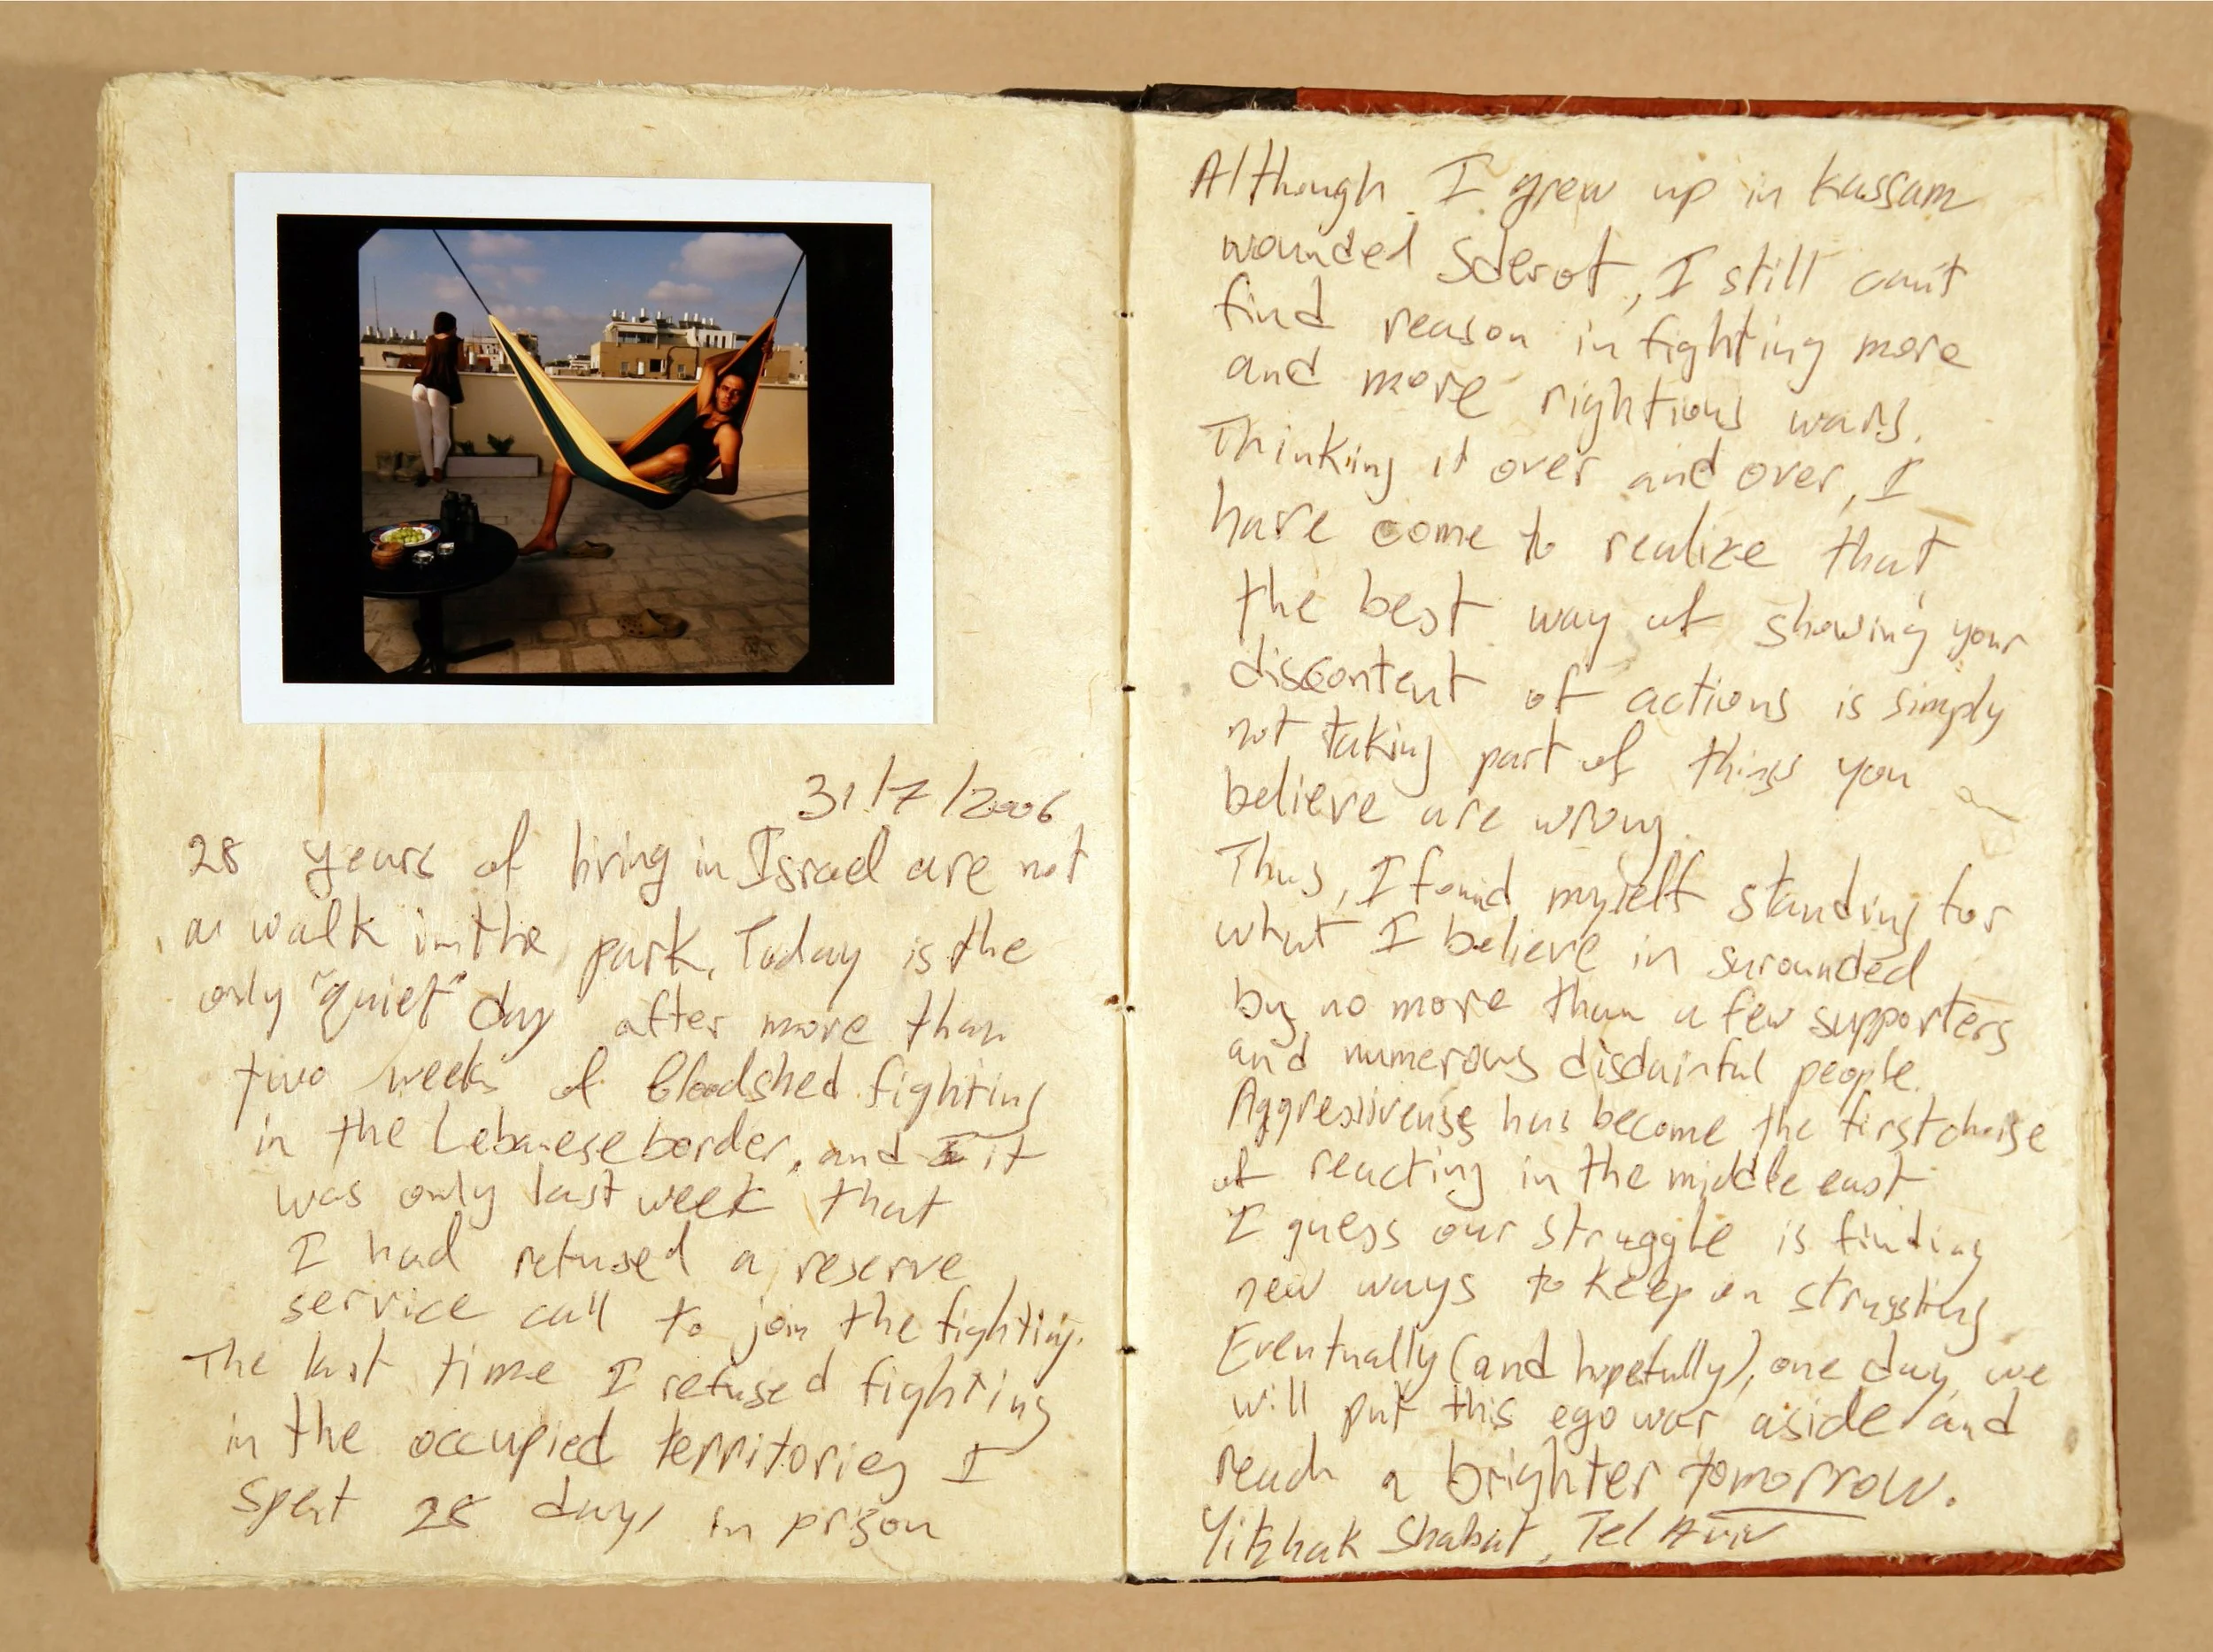 31/7/2006
28 years of living in Israel are not
a walk in the park. Today is the
only "quiet" day after more than
two weeks of bloodshed fighting
in the Lebanese border, and it
was only last week that
I had refused a reserve
service call to join the fighting.
The last time I refused fighting
in the occupied territories I
spent 28 days in prison
Although I grew up in kassam
wounded Sderot, I still can't
find reason in fighting more
and more rightious wars.
Thinking it over and over, I
have come to realize that
the best way of showing your
discontent of actions is simply
not taking part of things you
believe are wrong.
Thus, I found myself standing for
what I believe in surounded
by no more than a few supporters
and numerous disdainful people.
Aggressivenss has become the first choise
of reacting in the middle east
I guess our struggle is finding
new ways to keep on struggling
Eventually (and hopefully), one day, we
will put this ego war aside and
reach a brighter tomorrow.
Yitzhak Shabat, Tel Aviv